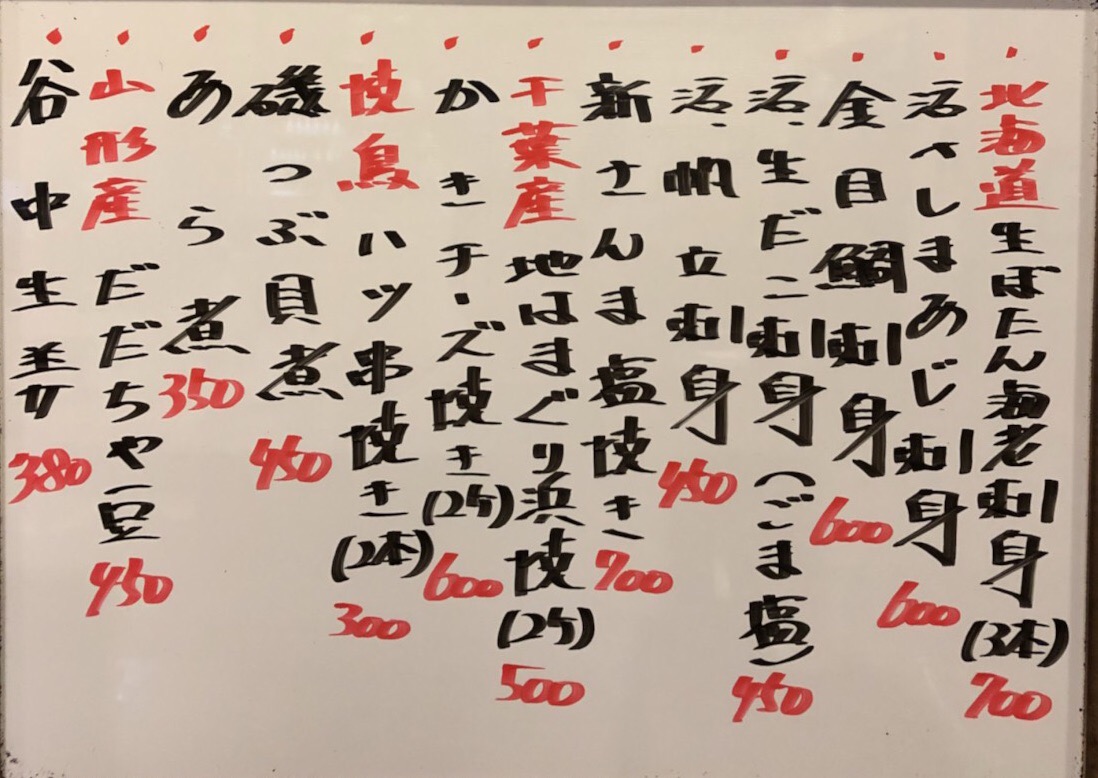 北海道生ぼたん海老刺身(3本)700
活〆しまあじ刺身600
金目鯛刺身600
活、生だこ刺身(ごま塩)450
活、帆立刺身450
新さんま塩焼き700
千葉産地はまぐり浜焼(2ケ)500
かきチーズ焼き(2ケ)600
焼鳥ハツ串焼き(2本)300
磯つぶ貝煮450
あら煮350
山形産だだちゃ豆450
谷中生姜380